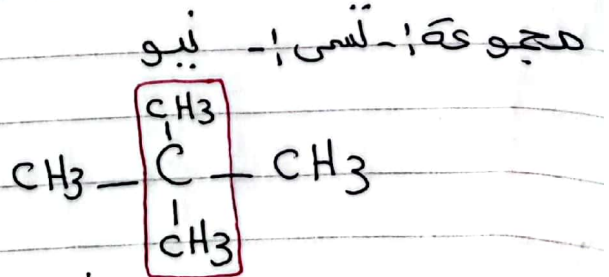 مجوعة :- تسمى :- نيو
CH3
CH3 — C — CH3
CH3